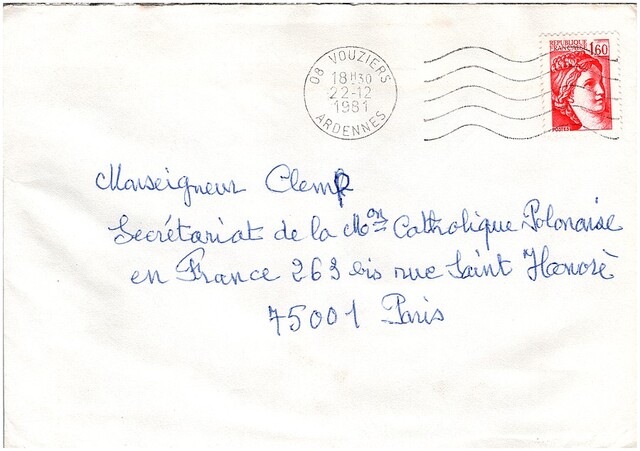 08 VOUZIERS
18H30
22-12
1981
ARDENNES
REPUBLIQUE
FRANCAISE 1,60
POSTES
Monseigneur Clemp
Secrétariat de la Mon Catholique Polonaise
en France 263 bis rue Saint Honoré
75001 Paris